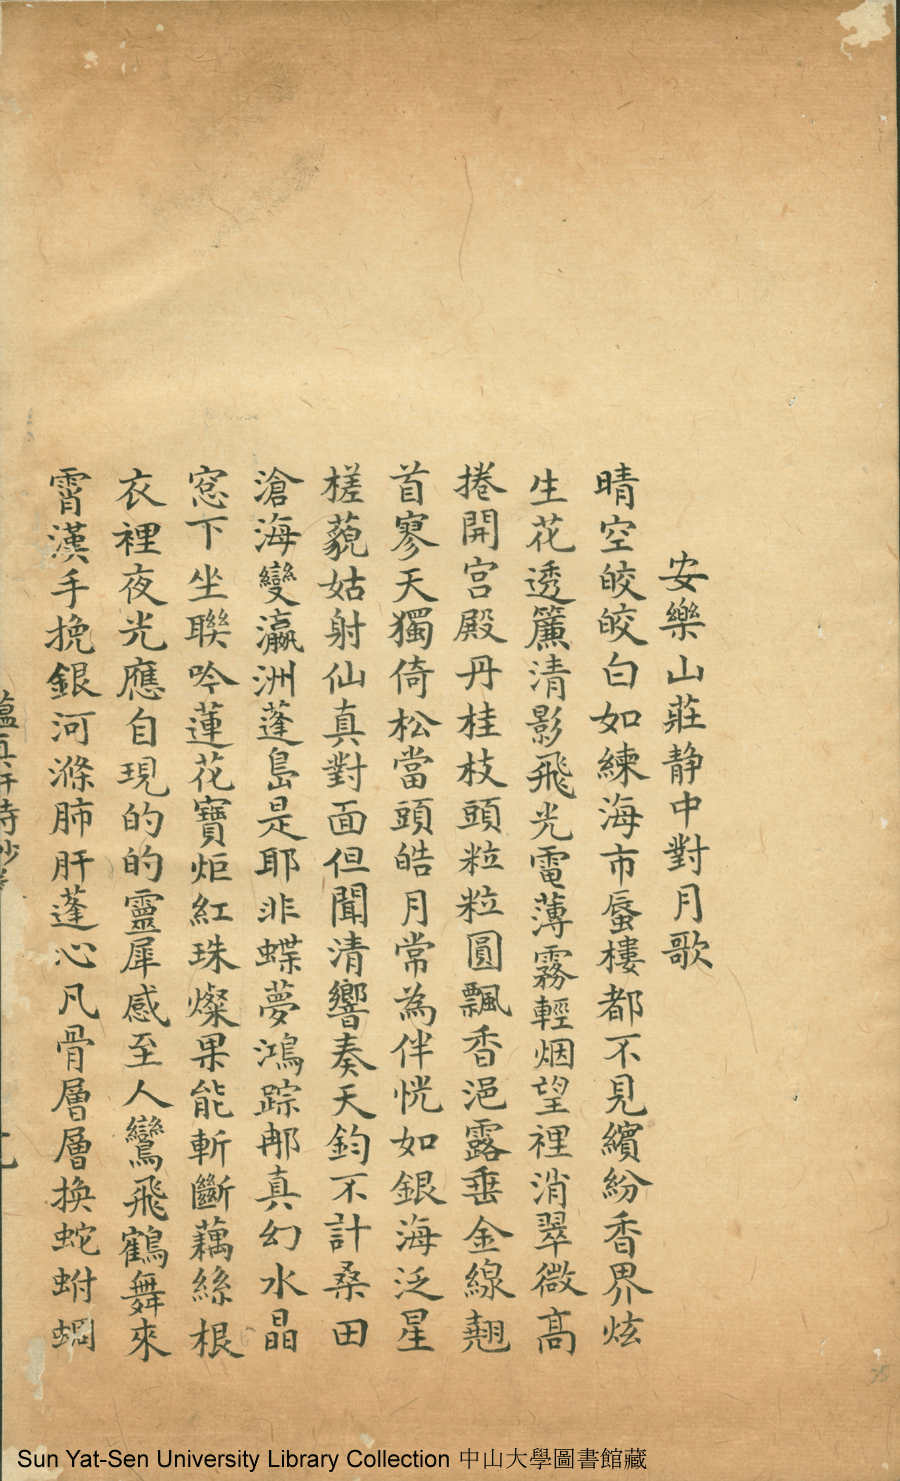 安樂山莊静中對月歌
晴空皎皎白如練海市蜃樓都不見繽紛香界炫
生花透簾清影飛光電薄霧輕烟望裡消翠微高
捲開宮殿丹桂枝頭粒粒圓飄香浥露垂金線翹
首寥天獨倚松當頭皓月常為伴恍如銀海泛星
槎藐姑射仙真對面但聞清響奏天鈞不計桑田
滄海變瀛洲蓬島是耶非蝶夢鴻踪那真幻水晶
窓下坐聯吟蓮花寶炬紅珠燦果能斬斷藕絲根
衣裡夜光應自現的的靈犀感至人鸞飛鶴舞來
霄漢手挽銀河滌肺肝蓬心凡骨層層換蛇蚹蜩
蘊真軒詩鈔
Sun Yat-Sen University Library Collection 中山大學圖書館藏